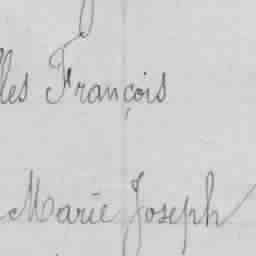 les François
Marie Joseph